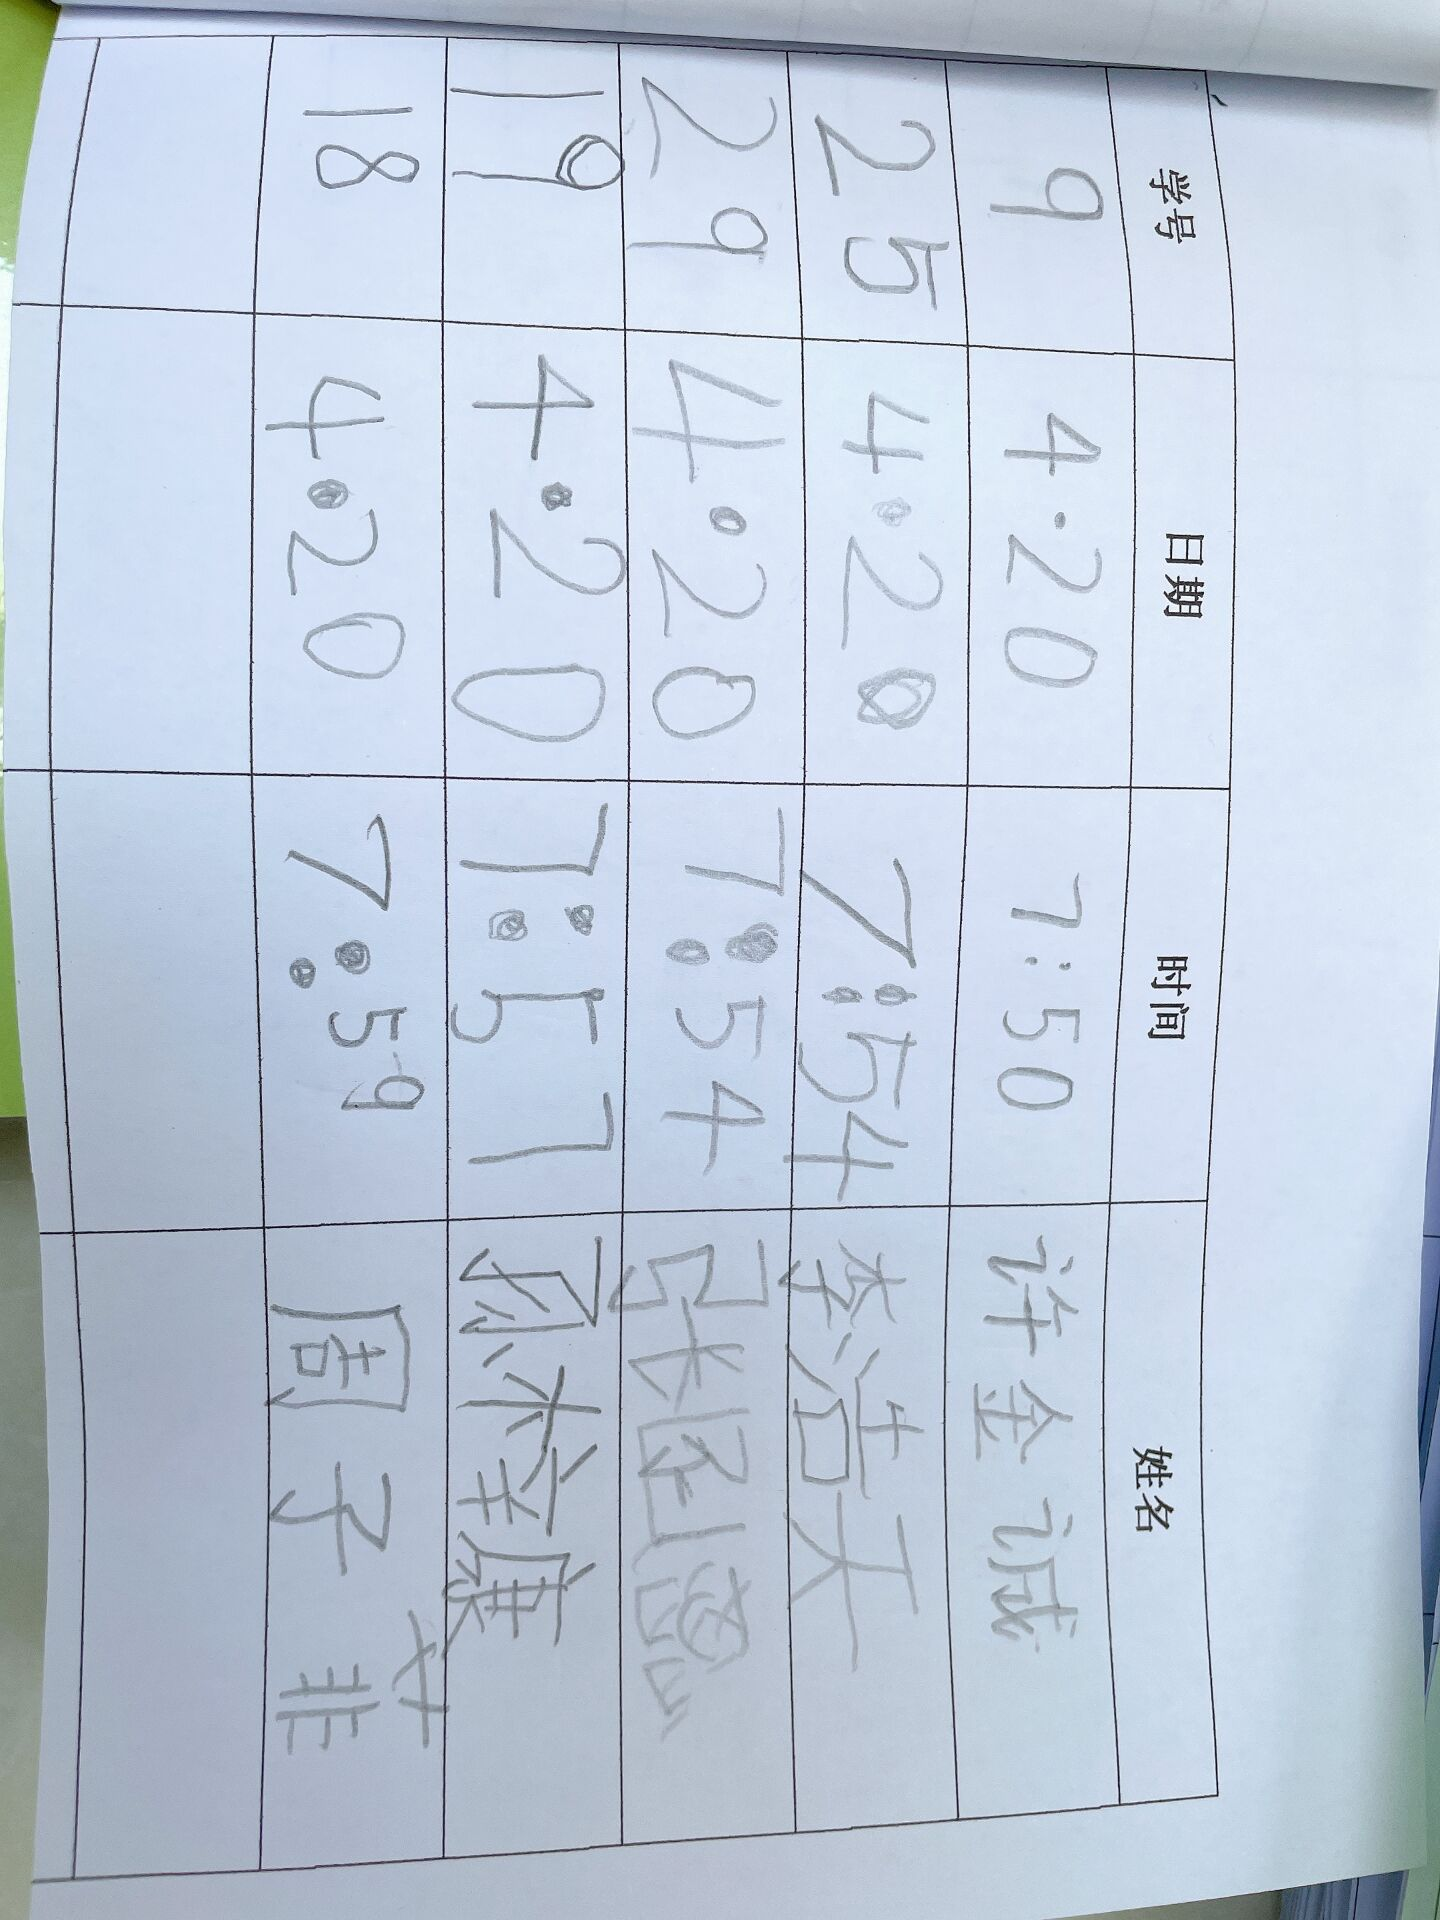 学号 日期 时间 姓名
9 4·20 7:50 许金诚
25 4·20 7:54 李浩天
29 4·20 7:54
19 4·20 7:57 孙梓康
18 4·20 7:59 周子菲